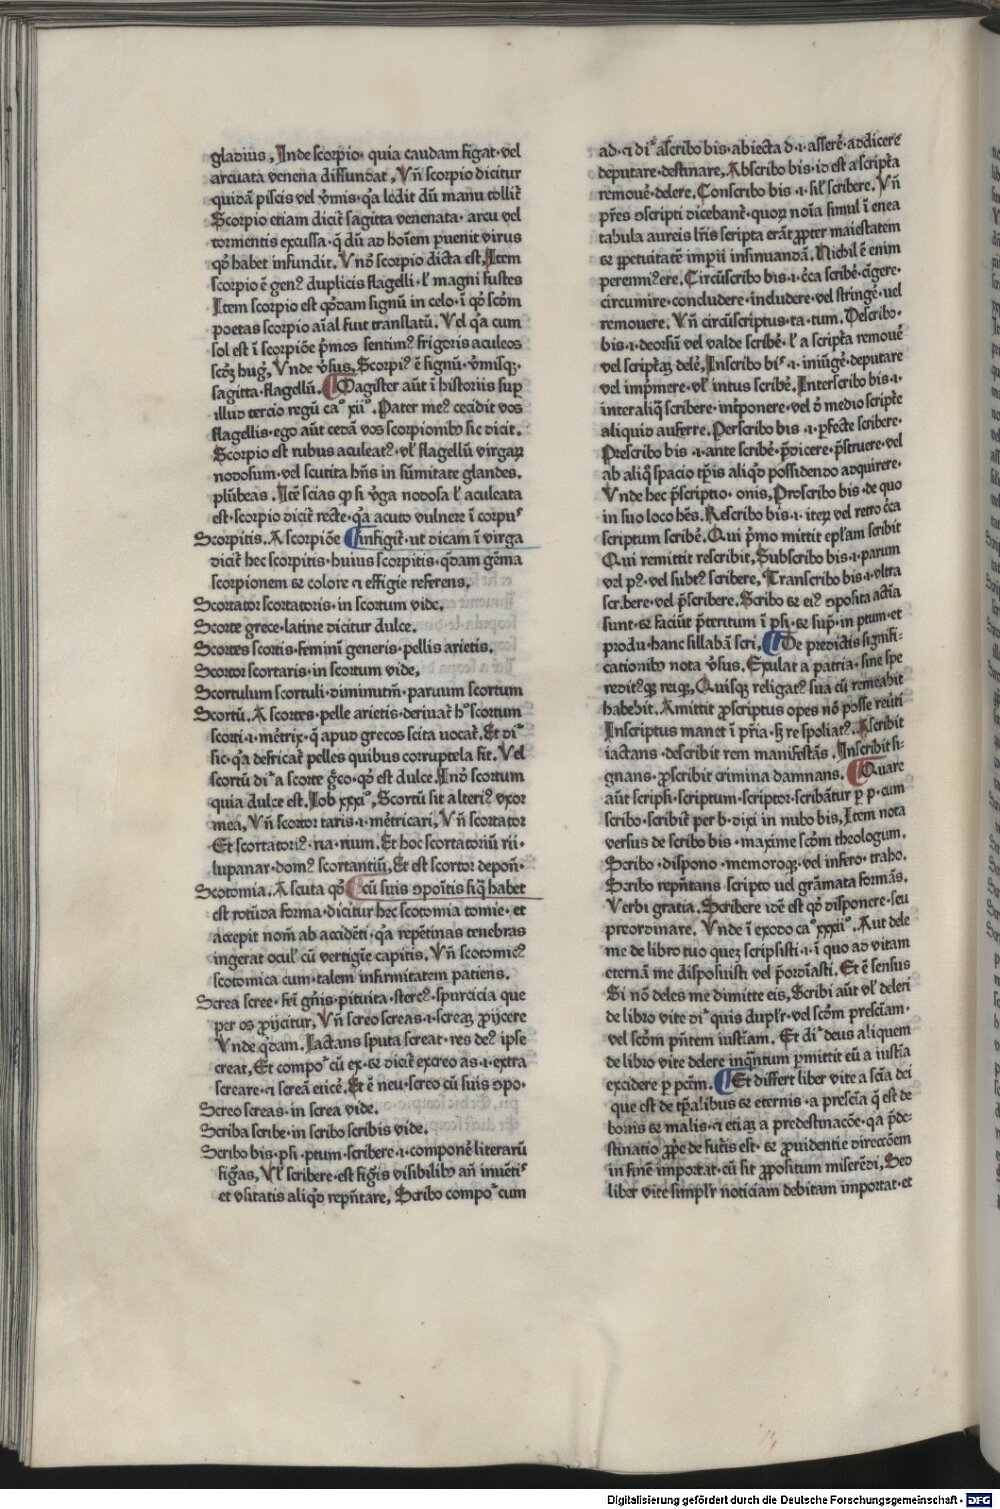 gladius, Inde scorpio· quia caudam figat·vel
arcuata venena diffundat, Vn̄ scorpio dicitur
quidā piscis vel v̓mis· q̄a ledit dū manu tollit̄
Scorpio etiam dicit̄ sagitta venenata· arcu vel
tormentis excussa·q̄ dū ad hoīem ꝑuenit virus
qd̓ habet infundit. Vnō scorpio dicta est, Item
scorpio ē gen⁹ duplicis flagelli·ł magni fustes
Item scorpio est qd̓dam signū in celo·ī qd̓ scd̓m
poetas scorpio aīal fuit translatū. Vel q̄a cum
sol est ī scorpiōe p̄mos sentim⁹ frigoris aculeos
Vnde v̓sus, Scorpi⁹ ē signū·v̓misqȝ·
sagitta·flagellū. Magister aūt ī historiis suꝑ
illud tercio regū caͦ xiiͦ. Pater me⁹ cecidit vos
flagellis·ego aūt cedā vos scorpionibȝ sic dicit·
Scorpio est rubus aculeat⁹·vł flagellū virgaꝝ
nodosum·vel scutica hn̄s in sūmitate glandes.
plūbeas. Itē scias ꝙ si v̓ga nodosa ł aculeata
est·scorpio dicit̄ recte·q̄a acuto vulnere ī corpuˢ
Scorpitis. A scorpiōe infigit̄·ut dicam ī virga
dicit̄ hec scorpitis·huius scorpitis·q̄dam gēma
scorpionem et colore ⁊ effigie referens.
Scortator scortatoris·in scortum vide.
Scorte grece·latine dicitur dulce.
Scortes scortis·femini generis·pellis arietis.
Scortor scortaris·in scortum vide,
Scortulum scortuli·diminutīm·paruum scortum
Scortū. A scortes·pelle arietis·deriuat̄ hͦ scortum
scorti·ı·mēt̓rix·q̄ apud grecos scita uocat̄. Et dīᵗ
sic·q̄a defricat̄ pelles quibus corruptela fit. Vel
scortū dīᵗ a scorte g̓co·qd̓ est dulce. Inō scortum
quia dulce est. Iob xxxiͦ, Scortū sit alteri⁹ vxor
mea, Vn̄ scortor taris·ı·mēt̓ricari, Vn̄ scortator
Et scortatori⁹·ria·rium. Et hoc scortatoriū rii·
lupanar·dom⁹ scortantiū, Et est scortor depoñ·
Scotomia. A scuta qd̓ cū suis ꝯpoītis siq̄ habet
est rotūda forma·dicitur hec scotomia tomie·et
accepit nom̄ ab accidēti·q̄a repētinas tenebras
ingerat oculꝭ cū vertigīe capitis. Vn̄ scotomic⁹
scotomica cum·talem infirmitatem patiens.
Screa scree·fēi gn̄is·pituita·stere⁹·spurcicia que
per os ꝓijcitur, Vn̄ screo screas·ı·screaꝝ ꝓijcere
Vnde q̄dam. Iactans sputa screat·res de⁹ ipse
creat, Et compoᵗ cū ex·et dicit̄ excreo as·ı·extra
screare·⁊ screā eiicē. Et ē neu·screo cū suis ꝯpo·
Screo screas·in screa vide.
Scriba scribe·in scribo scribis vide.
Scribo bis·psi·ptum·scribere·ı·componē literarū
figuras, Vł scribere·est figīs visibilibȝ añ inuētiˢ
et vsitatis aliqd̓ repn̄tare, Scribo compoᵗ cum
ad·⁊ dīᵗ ascribo bis·abiecta d·ı·asserē·addicere
deputare·destinare, Abscribo bis·id est a scripta
remouē·delere. Conscribo bis·ı·silꝰ scribere. Vn̄
pr̄es ꝯscripti dicebant̄·quoꝝ noīa simul ī enea
tabula aureis lr̄is scripta erāt ꝓpter maiestatem
et ꝑpetuitatē impii insinuandā. Nichil ē enim
perenni⁹ ere. Circūscribo bis·ı·c̄ca scribē·cīgere·
circumire·concludere·includere·vel stringē·uel
remouere. Vn̄ circūscriptus·ta·tum. Describo·
bis·ı·deorsū vel valde scribē·ł a scripta remouē
vel scriptaꝝ delē, Inscribo biˢ·ı·iniūgē·deputare
vel imp̄mere·vł intus scribē. Interscribo bis·ı·
inter aliq̄ scribere·int̓ponere·vel d̓ medio scripte
aliquid auferre. Perscribo bis·ı·ꝑfecte scribere·
Prescribo bis·ı·ante scribē·p̄dicere·p̄struere·vel
ab aliq̄ spacio tp̄is aliqd̓ possidendo adquirere·
Vnde hec p̄scriptio·onis, Proscribo bis·de quo
in suo loco hēs. Rescribo bis·ı·iteꝝ vel retro c̄ca
scriptum scribē. Qui p̄mo mittit epłam scribit
Qui remittit rescribit. Subscribo bis·ı·parum
vel p⁹·vel subt⁹ scribere, Transcribo bis·ı·vltra
scribere·vel p̄scribere. Scribo et ei⁹ ꝯposita actīa
sunt·et faciūt p̄teritum ī psi·et sup̄·in ptum·et
produ·hanc sillabā scri. De predictis signifi⸗
cationibȝ nota v̓sus. Exulat a patria·sine spe
redit⁹qȝ reiqȝ, Quisqȝ religat⁹ sua cū remeabit
habebit. Amittit ꝓscriptus opes nō posse reuti
Inscriptus manet ī pr̄ia·sȝ re spoliat⁹. Ascribit
iactans·describit rem manifestās. Inscribit si⸗
gnans·ꝓscribit crimina damnans. Quare
aūt scripsi·scriptum·scriptor·scribāntur ꝑ p·cum
scribo·scribit̄ per b·dixi in nubo bis, Item nota
versus de scribo bis·maxime scd̓m theologum.
Scribo·dispono·memoroqȝ·vel infero·traho.
Scribo repn̄tans scripto uel grāmata formās.
Verbi gratia. Scribere idē est qd̓ disponere·seu
preordinare. Vnde ī exodo caͦ xxxiiͦ. Aut dele
me de libro tuo queȝ scripsisti·ı·ī quo ad vitam
eternā me disposuisti vel p̄ordīasti. Et ē sensus
Si nō deles me dimitte eis, Scribi aūt vł deleri
de libro vite dīᵗ quis duplꝰr·vel scd̓m presciam·
vel scd̓m pn̄tem iusticiam. Et dīᵗ deus aliquem
de libro vite delere inq̄ntum ꝑmittit eū a iustīa
excidere ꝑ pctm̄. Et differt liber vite a scīa dei
que est de tp̄alibus et eternis·a prescīa q̄ est de
bonis et malis·⁊ etiaꝝ a predestinacōe·qa p̄de⸗
stinatio ꝓpe de futis est·et ꝓuidentie direccōem
in finē importat·cū sit ꝓpositum miserēdi, Sed
liber vite simplꝰr noticiam debitam importat·et